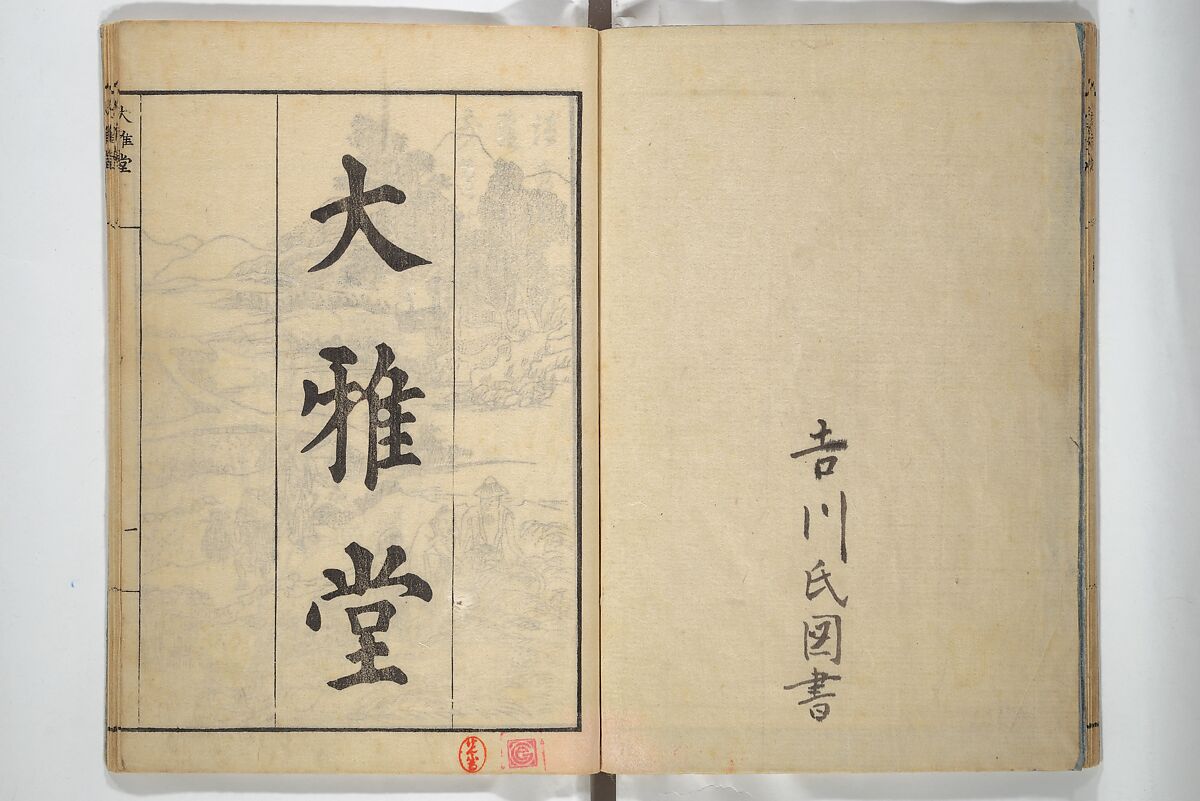 吉川氏図書
大雅堂
大雅堂
一